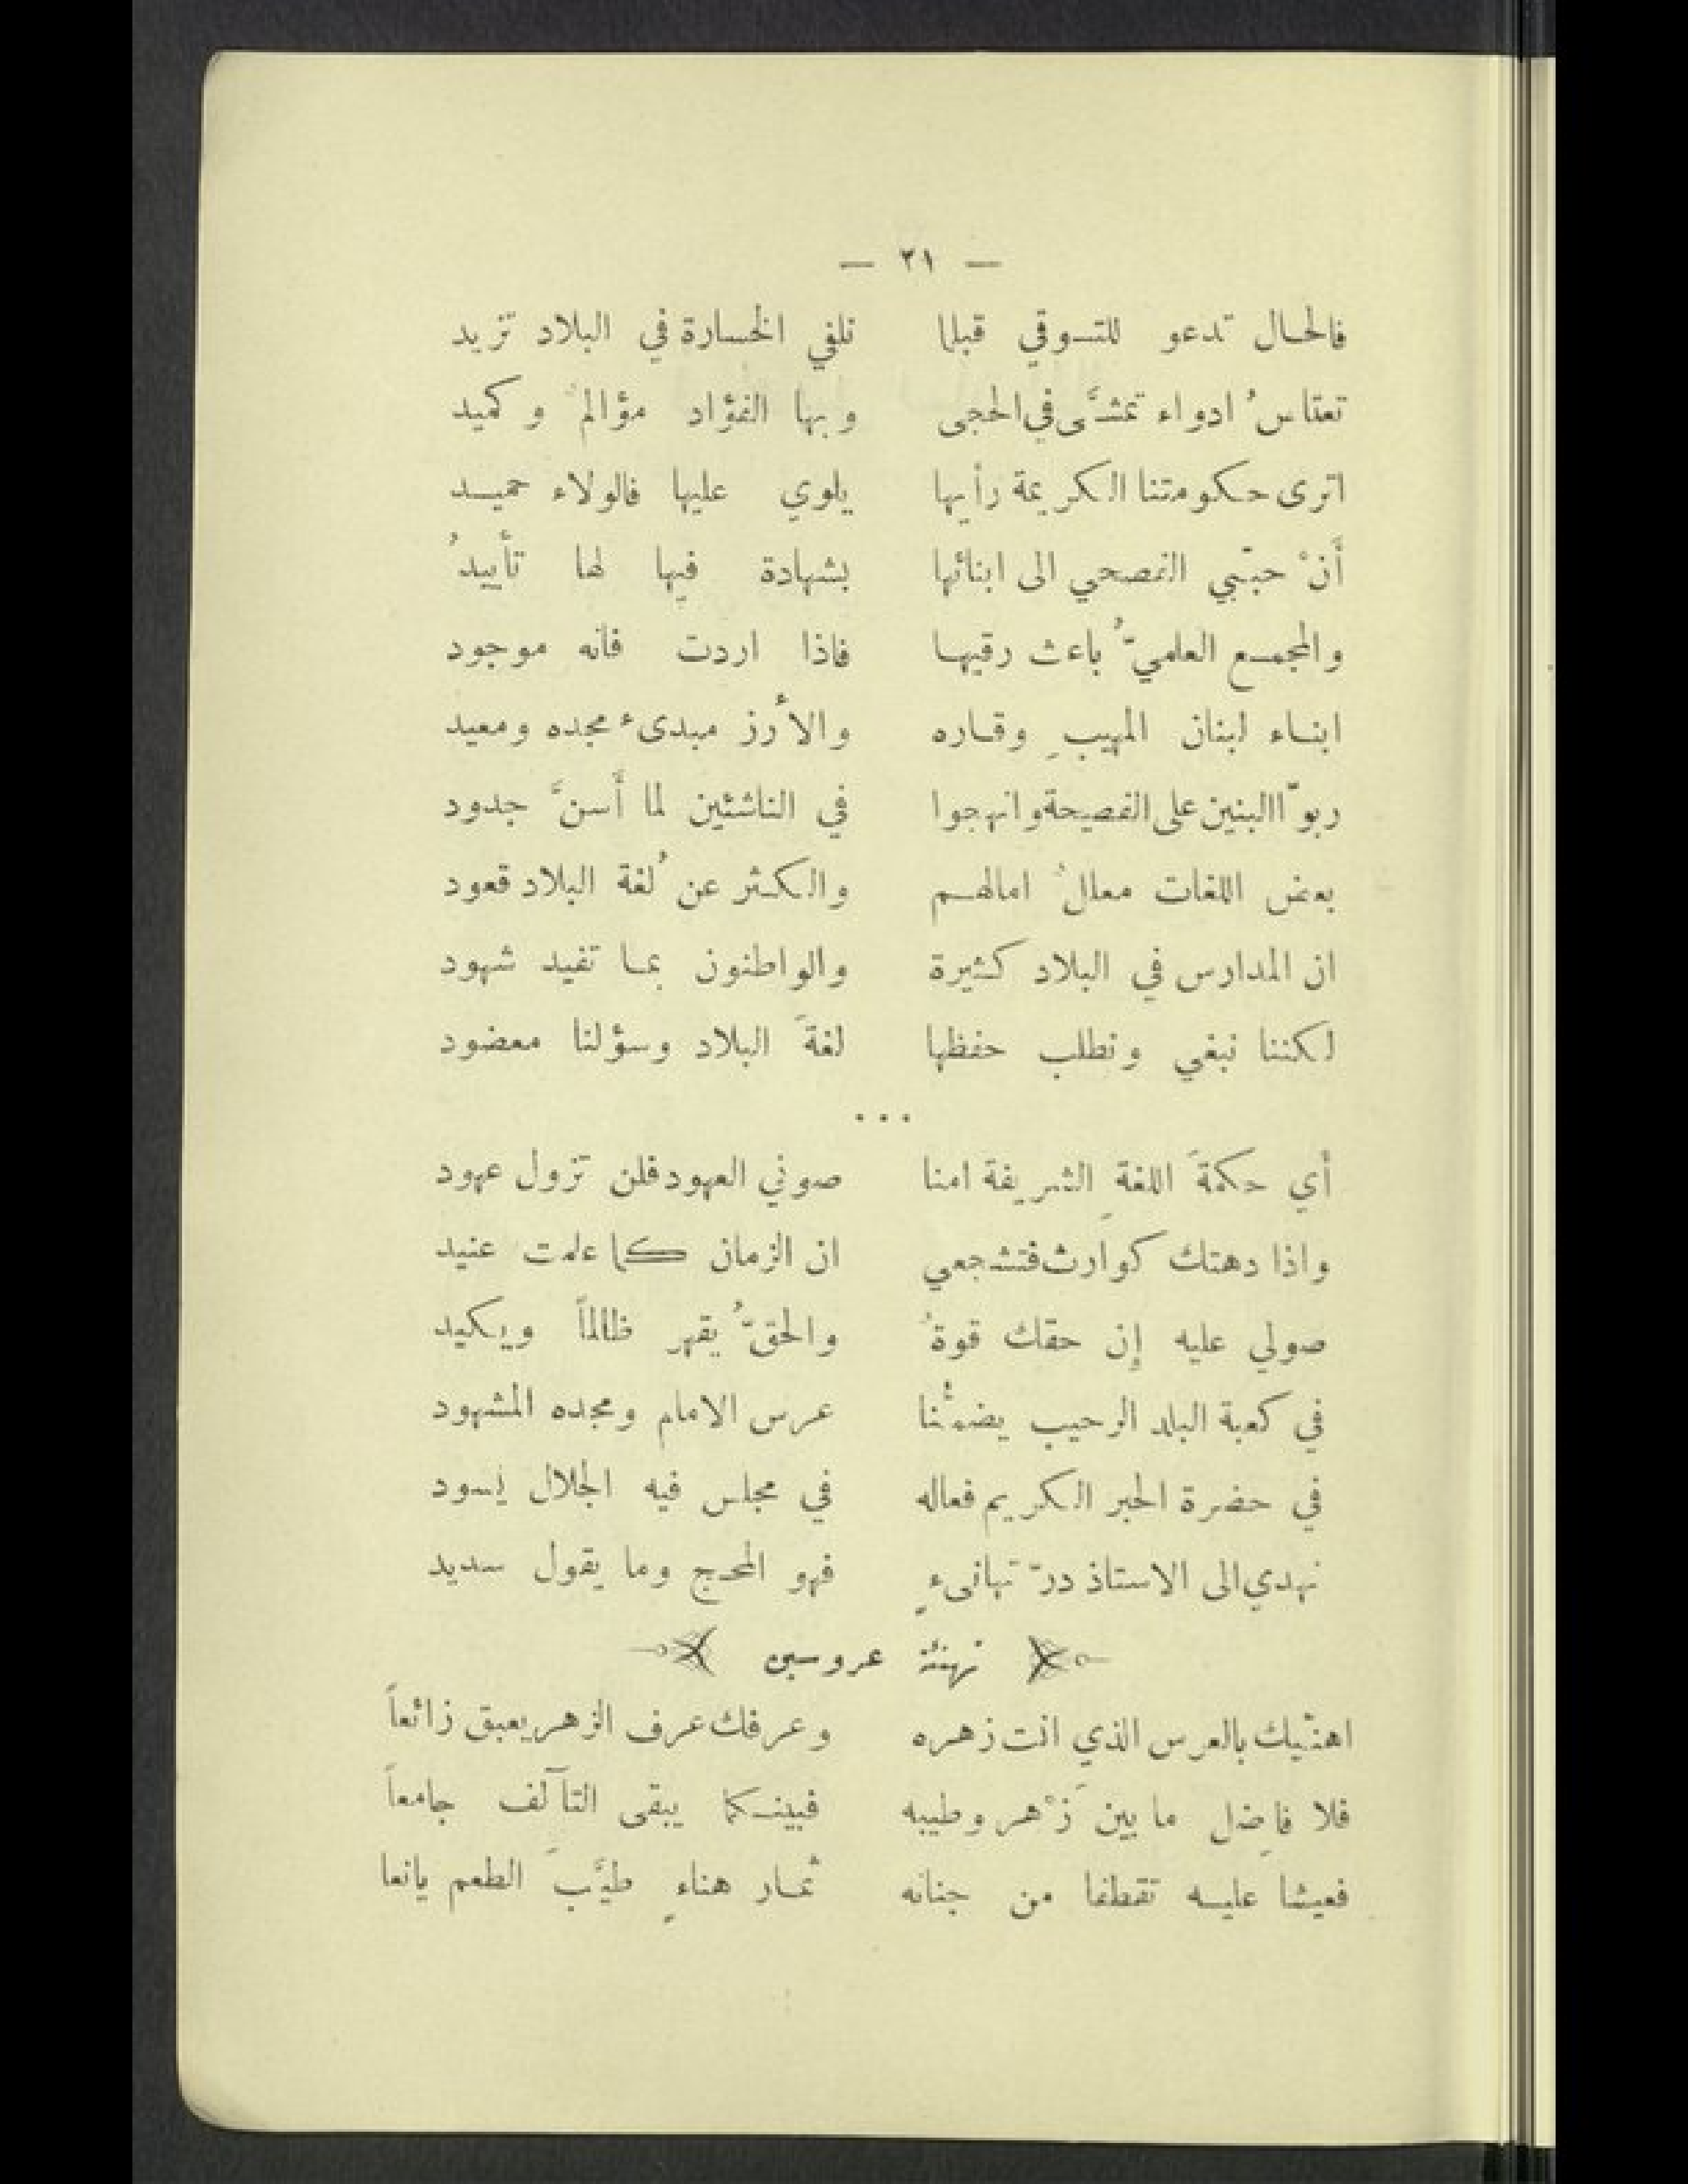 — ٣١ —
فالحال تدعو للتوقي قبلما نلفي الخسارة في البلاد تزيد
تعتاسُ ادواء تمشَّى في الحجى وبها الفؤاد مؤالمٌ وكميد
اترى حكومتنا الكريمة رأيها يلوي عليها فالولاء حميد
أَنْ حبّبي الفصحي الى ابنائها بشهادة فيها لها تأييدُ
والمجمع العلميُّ باعث رقيها فاذا اردت فانه موجود
ابناء لبنان المهيبِ وقاره والأرز مبدىء مجده ومعيد
ربوّا البنين على الفصيحة وانهجوا في الناشئين لما أَسنَّ جدود
بعض اللغات معللٌ امالهم والكثر عن لُغة البلاد قعود
ان المدارس في البلاد كثيرة والواطنون بما تفيد شهود
لكننا نبغي ونطلب حفظها لغةَ البلاد وسؤلنا معضود
...
أي حكمةَ اللغةِ الشريفة امنا صوني العهود فلن تزول عهود
واذا دهتك كوارث فتشجعي ان الزمان كما علمت عنيد
صولي عليه إن حقك قوةٌ والحقُّ يقهر ظالماً ويكيد
في كعبة البلد الرحيب يضمُّنا عرس الامام ومجده المشهود
في حضرة الحبر الكريم فعاله في مجلس فيه الجلال يسود
نهدي الى الاستاذ درّ تهانىءٍ فهو المحج وما يقول سديد
تهنئة عروسين
اهنّيك بالعرس الذي انت زهره وعرفك عرف الزهر يعبق زائعاً
فلا فاضِل ما بينَ زْهر وطيبه فبينكما يبقى التآلف جامعاً
فعيشا عليه تقطفا من جنانه ثمار هناءٍ طيَّبَ الطعم يانعا